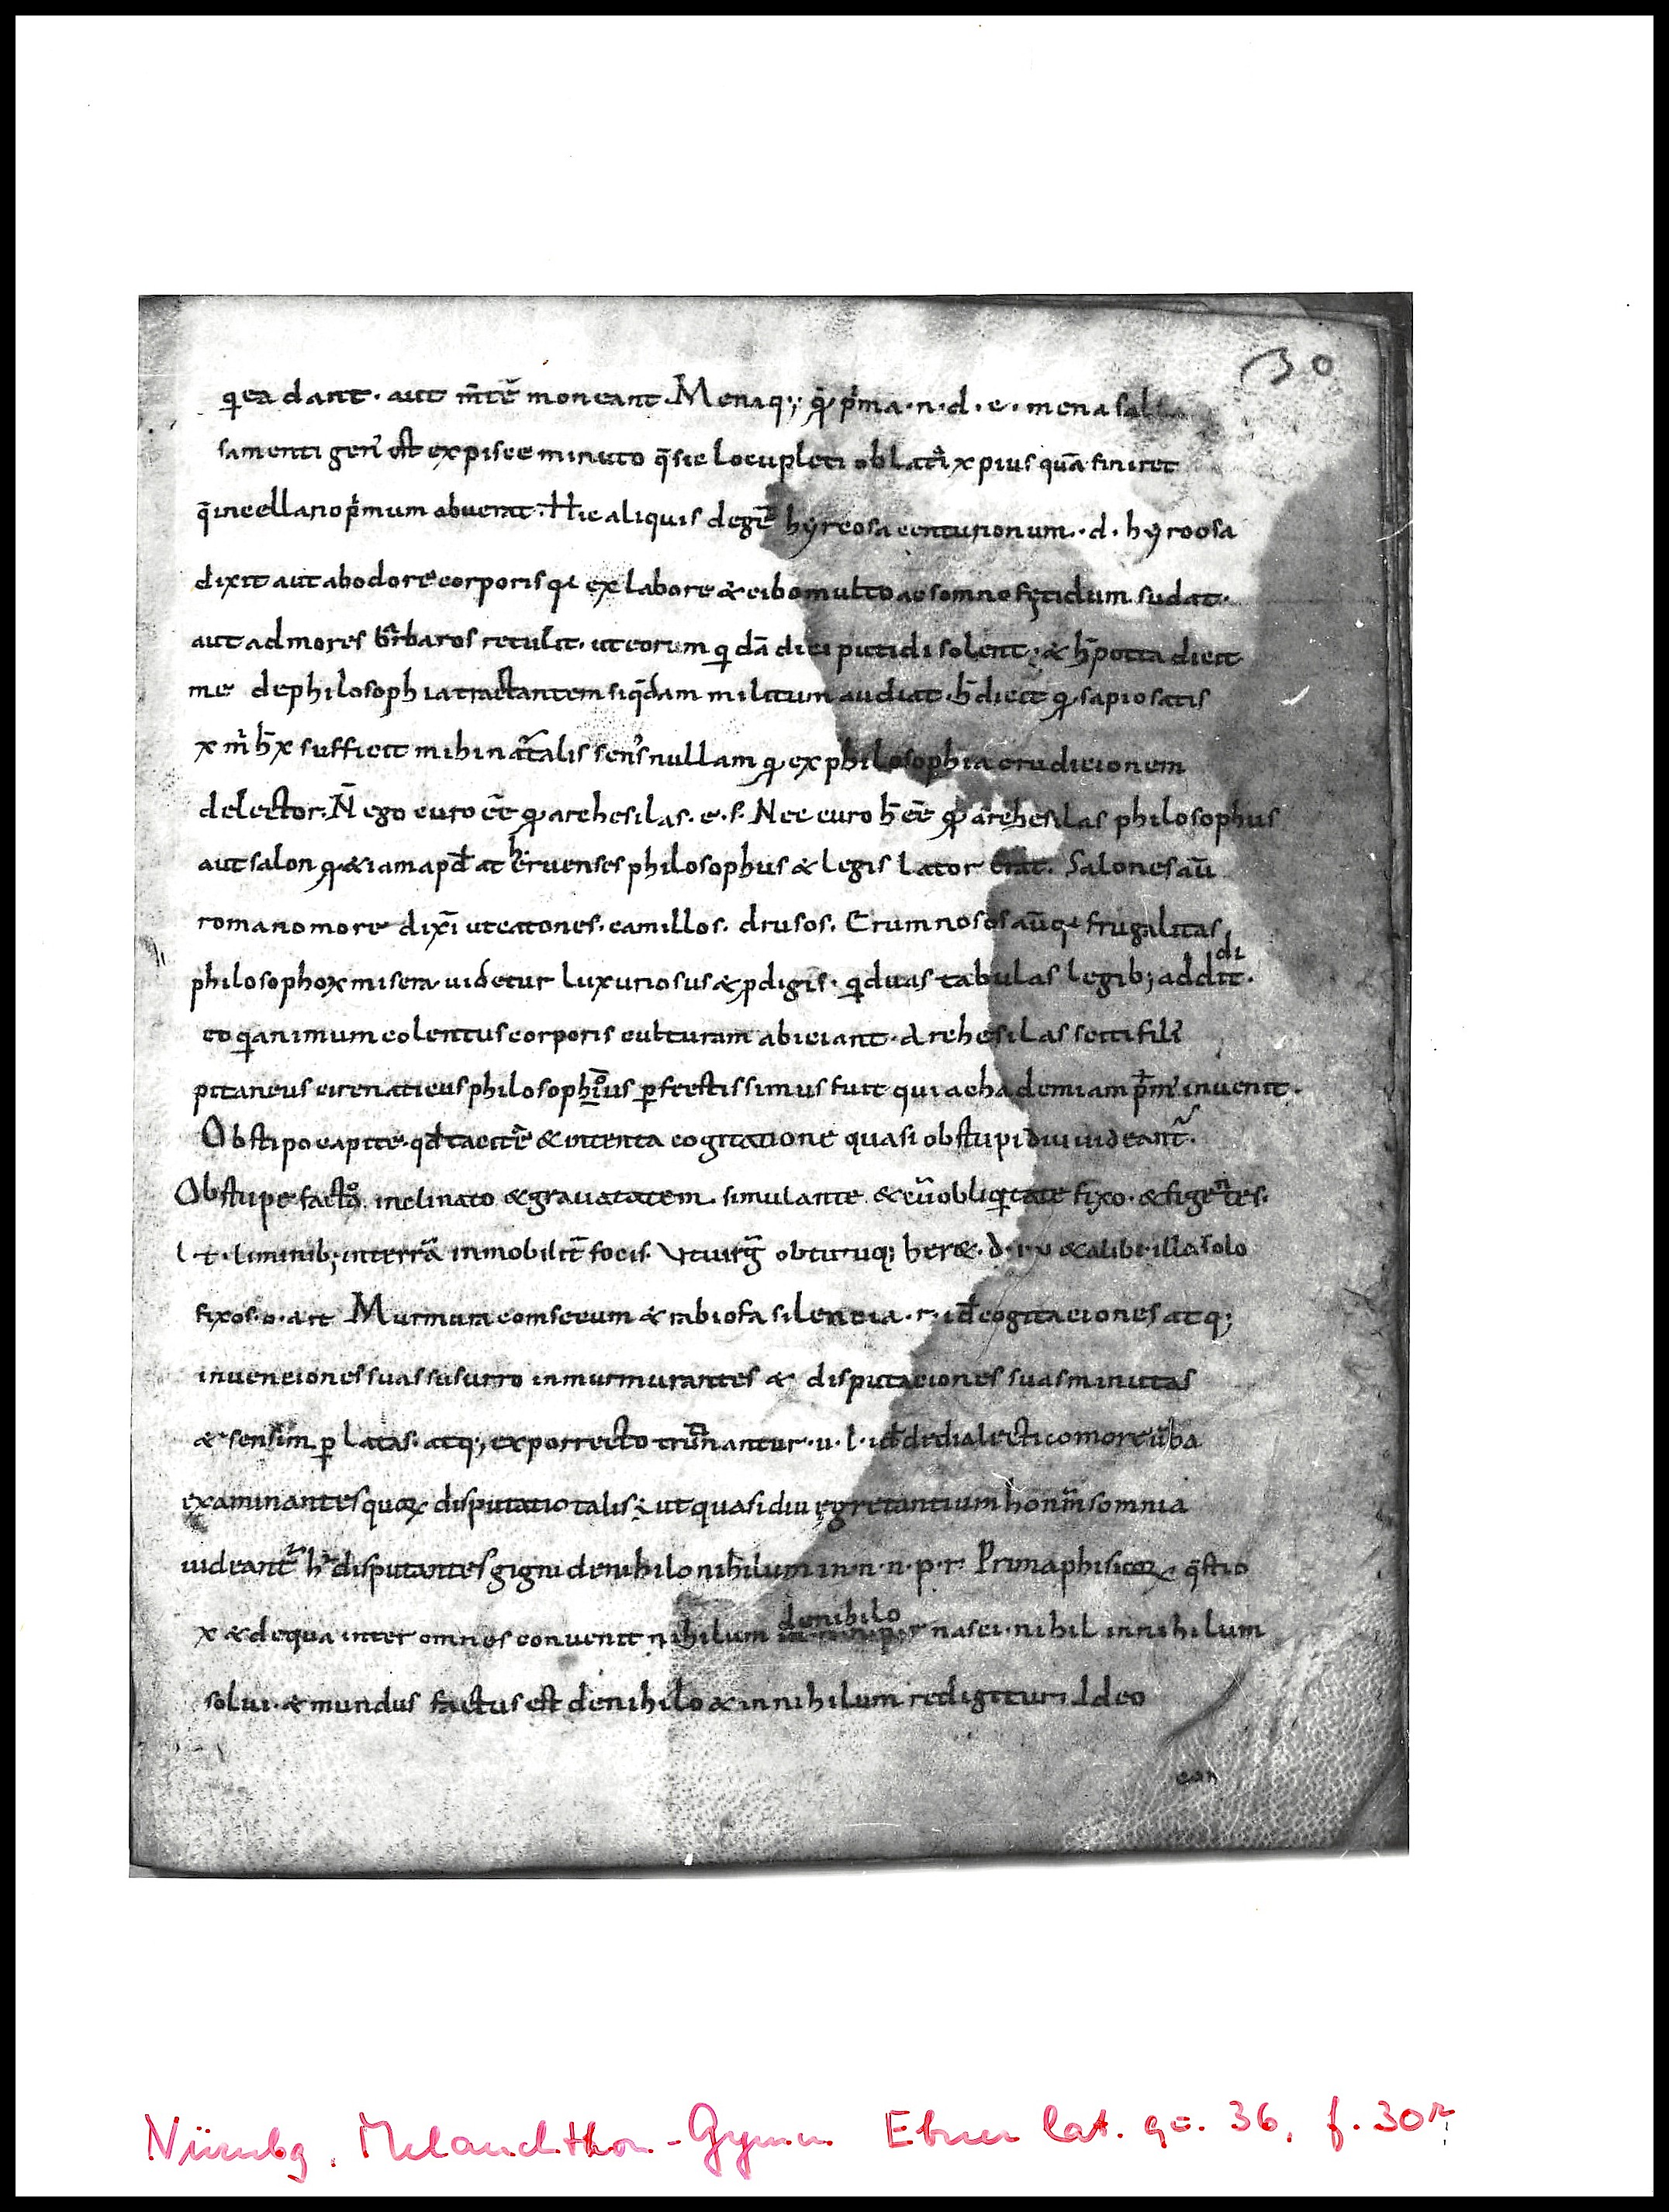 30
qi ea dant · aut m̄tē moneant. Menaq;; q̇ p̍ma · n · d · e · mena sal
samenti gen᷒ est ex pisce minuto q̄ sic locupleti oblat᷒ x pius quā finiret
q̄ in cellario p̍mum abuerat. Hic aliquis de gē hyrcosa centurionum · d · hyrcosa
dixit aut ab odore corporis qͥ ex labore & cibo multo ac somno fętidum sudat ·
aut ad mores barbaros retulit · ut eorum qͥdā dici putidi solent ; & h̄ poeta dicit
me de philosophia tractantem si q̄dam militum audiat · h̄ dicit q̇ sapio satis
x m̍ h̄ x sufficit mihi nat̄alis sens᷒ nullam q̇ ex philosophia erudicionem
delector. N̄ ego curo eē q̇ archesilas · e · s · Nec curo h̄ eē q̇ archesilas philosophus
aut salon q · & iam apd̄ at heruenses philosophus & legis lator erat. Salones aū
romano more dix̄ ut catones · camillos · drusos. Erumnosos aū qͥ frugalitas
philosophoꝝ misera uidetur luxuriosus & pdigis · qͥ duas tabulas legib; addidit ·
eo q animum colentus corporis culturam abiciant · Archesilas setti fili᷒
pitaneus cirenaticus philosophus pfectissimus fuit qui achademiam p̍m᷒ inuenit ·
Obstipo capite · qd̄ tacitē & intenta cogitatione quasi obstupidiui uideant᷒.
Obstupefacto inclinato & grauatatem · simulante & cū obliqitate fixo · & figentes ·
l · t · liminib; in terrā inmobilit̄ focis. Vt uirḡ obtutuq; her& · d · & alibi · illa solo
fixos · o · a rt Murmura com secum & rabiosa silencia · r · id̄ cogitaciones atq;
inuenciones suas susurro inmurmurantes & disputaciones suas minutas
& sensim p latas · atq; exporrecto trutinantur · u · l · id̄ de dialectico more ūba
examinantes quoꝝ disputatio talis ÷ ut quasi diu ęgretantium hominum somnia
uideant᷒ h̄ disputantes gigni de nihilo nihilum in · n · n · p · r · Prima phisicoꝝ q̄stio
x & de qua inter omnes conuenit nihilum de nihilo nasci · nihil in nihilum
solui · & mundus factus est de nihilo & in nihilum redigitur. Ideo
Nürnbg. Melanchthon-Gymn. Ebner lat. qu. 36, f. 30r